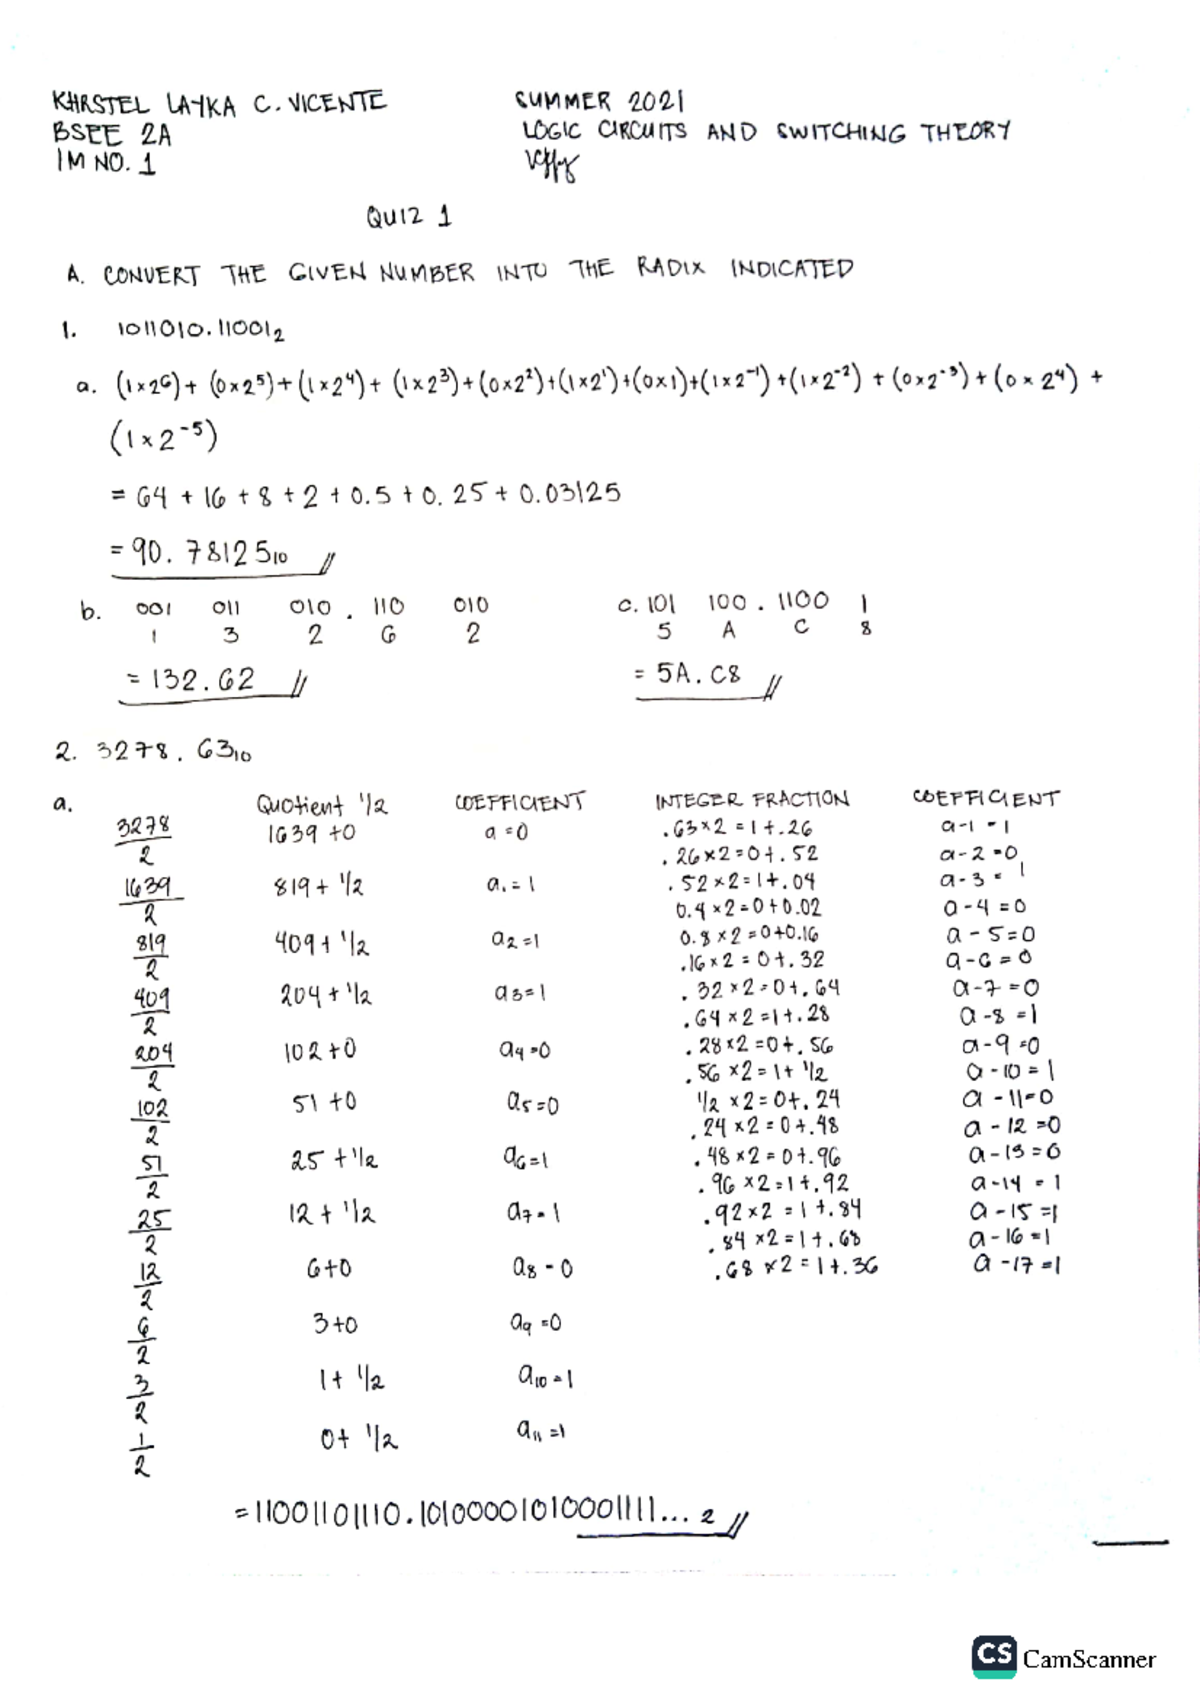 KHRSTEL LAYKA C. VICENTE
SUMMER 2021
BSEE 2A
LOGIC CIRCUITS AND SWITCHING THEORY
IM NO. 1
QUIZ 1
A. CONVERT THE GIVEN NUMBER INTO THE RADIX INDICATED
1. 1011010.11001₂
a. (1×2⁶)+ (0×2⁵)+(1×2⁴)+ (1×2³)+(0×2²)+(1×2¹)+(0×1)+(1×2⁻¹)+(1×2⁻²) + (0×2⁻³)+(0×2⁴) +
(1×2⁻⁵)
= 64 + 16 + 8 + 2 + 0.5 + 0.25 + 0.03125
= 90.78125₁₀
b. 001 011 010 . 110 010
1 3 2 6 2
= 132.62
c. 101 100 . 1100 1
5 A C 8
= 5A.C8
2. 3278.63₁₀
a. Quotient 1/2 COEFFICIENT INTEGER FRACTION COEFFICIENT
3278/2 1639 +0 a =0 .63×2 =1+.26 a-1 =1
.26×2=0+.52 a-2 =0
1639/2 819+ 1/2 a₁ =1 .52×2=1+.04 a-3 = 1
0.4×2=0+0.02 a-4 =0
819/2 409+ 1/2 a₂ =1 0.8×2=0+0.16 a-5=0
.16×2 = 0+.32 a-6 = 0
409/2 204+ 1/2 a₃=1 .32×2=0+.64 a-7 =0
.64×2=1+.28 a-8 =1
204/2 102+0 a₄=0 .28×2=0+.56 a-9 =0
.56 ×2=1+ 1/2 a-10 = 1
102/2 51 +0 a₅=0 1/2 ×2=0+.24 a-11=0
.24×2=0+.48 a-12 =0
51/2 25 +1/2 a₆=1 .48×2=0+.96 a-13=0
.96 ×2=1+.92 a-14 = 1
25/2 12 + 1/2 a₇=1 .92×2 =1+.84 a-15 =1
.84 ×2=1+.68 a-16 =1
12/2 6+0 a₈=0 .68 ×2=1+.36 a-17=1
6/2 3+0 a₉ =0
3/2 1+ 1/2 a₁₀=1
1/2 0+ 1/2 a₁₁ =1
=110011011110.10100001010001111... ₂
CS CamScanner